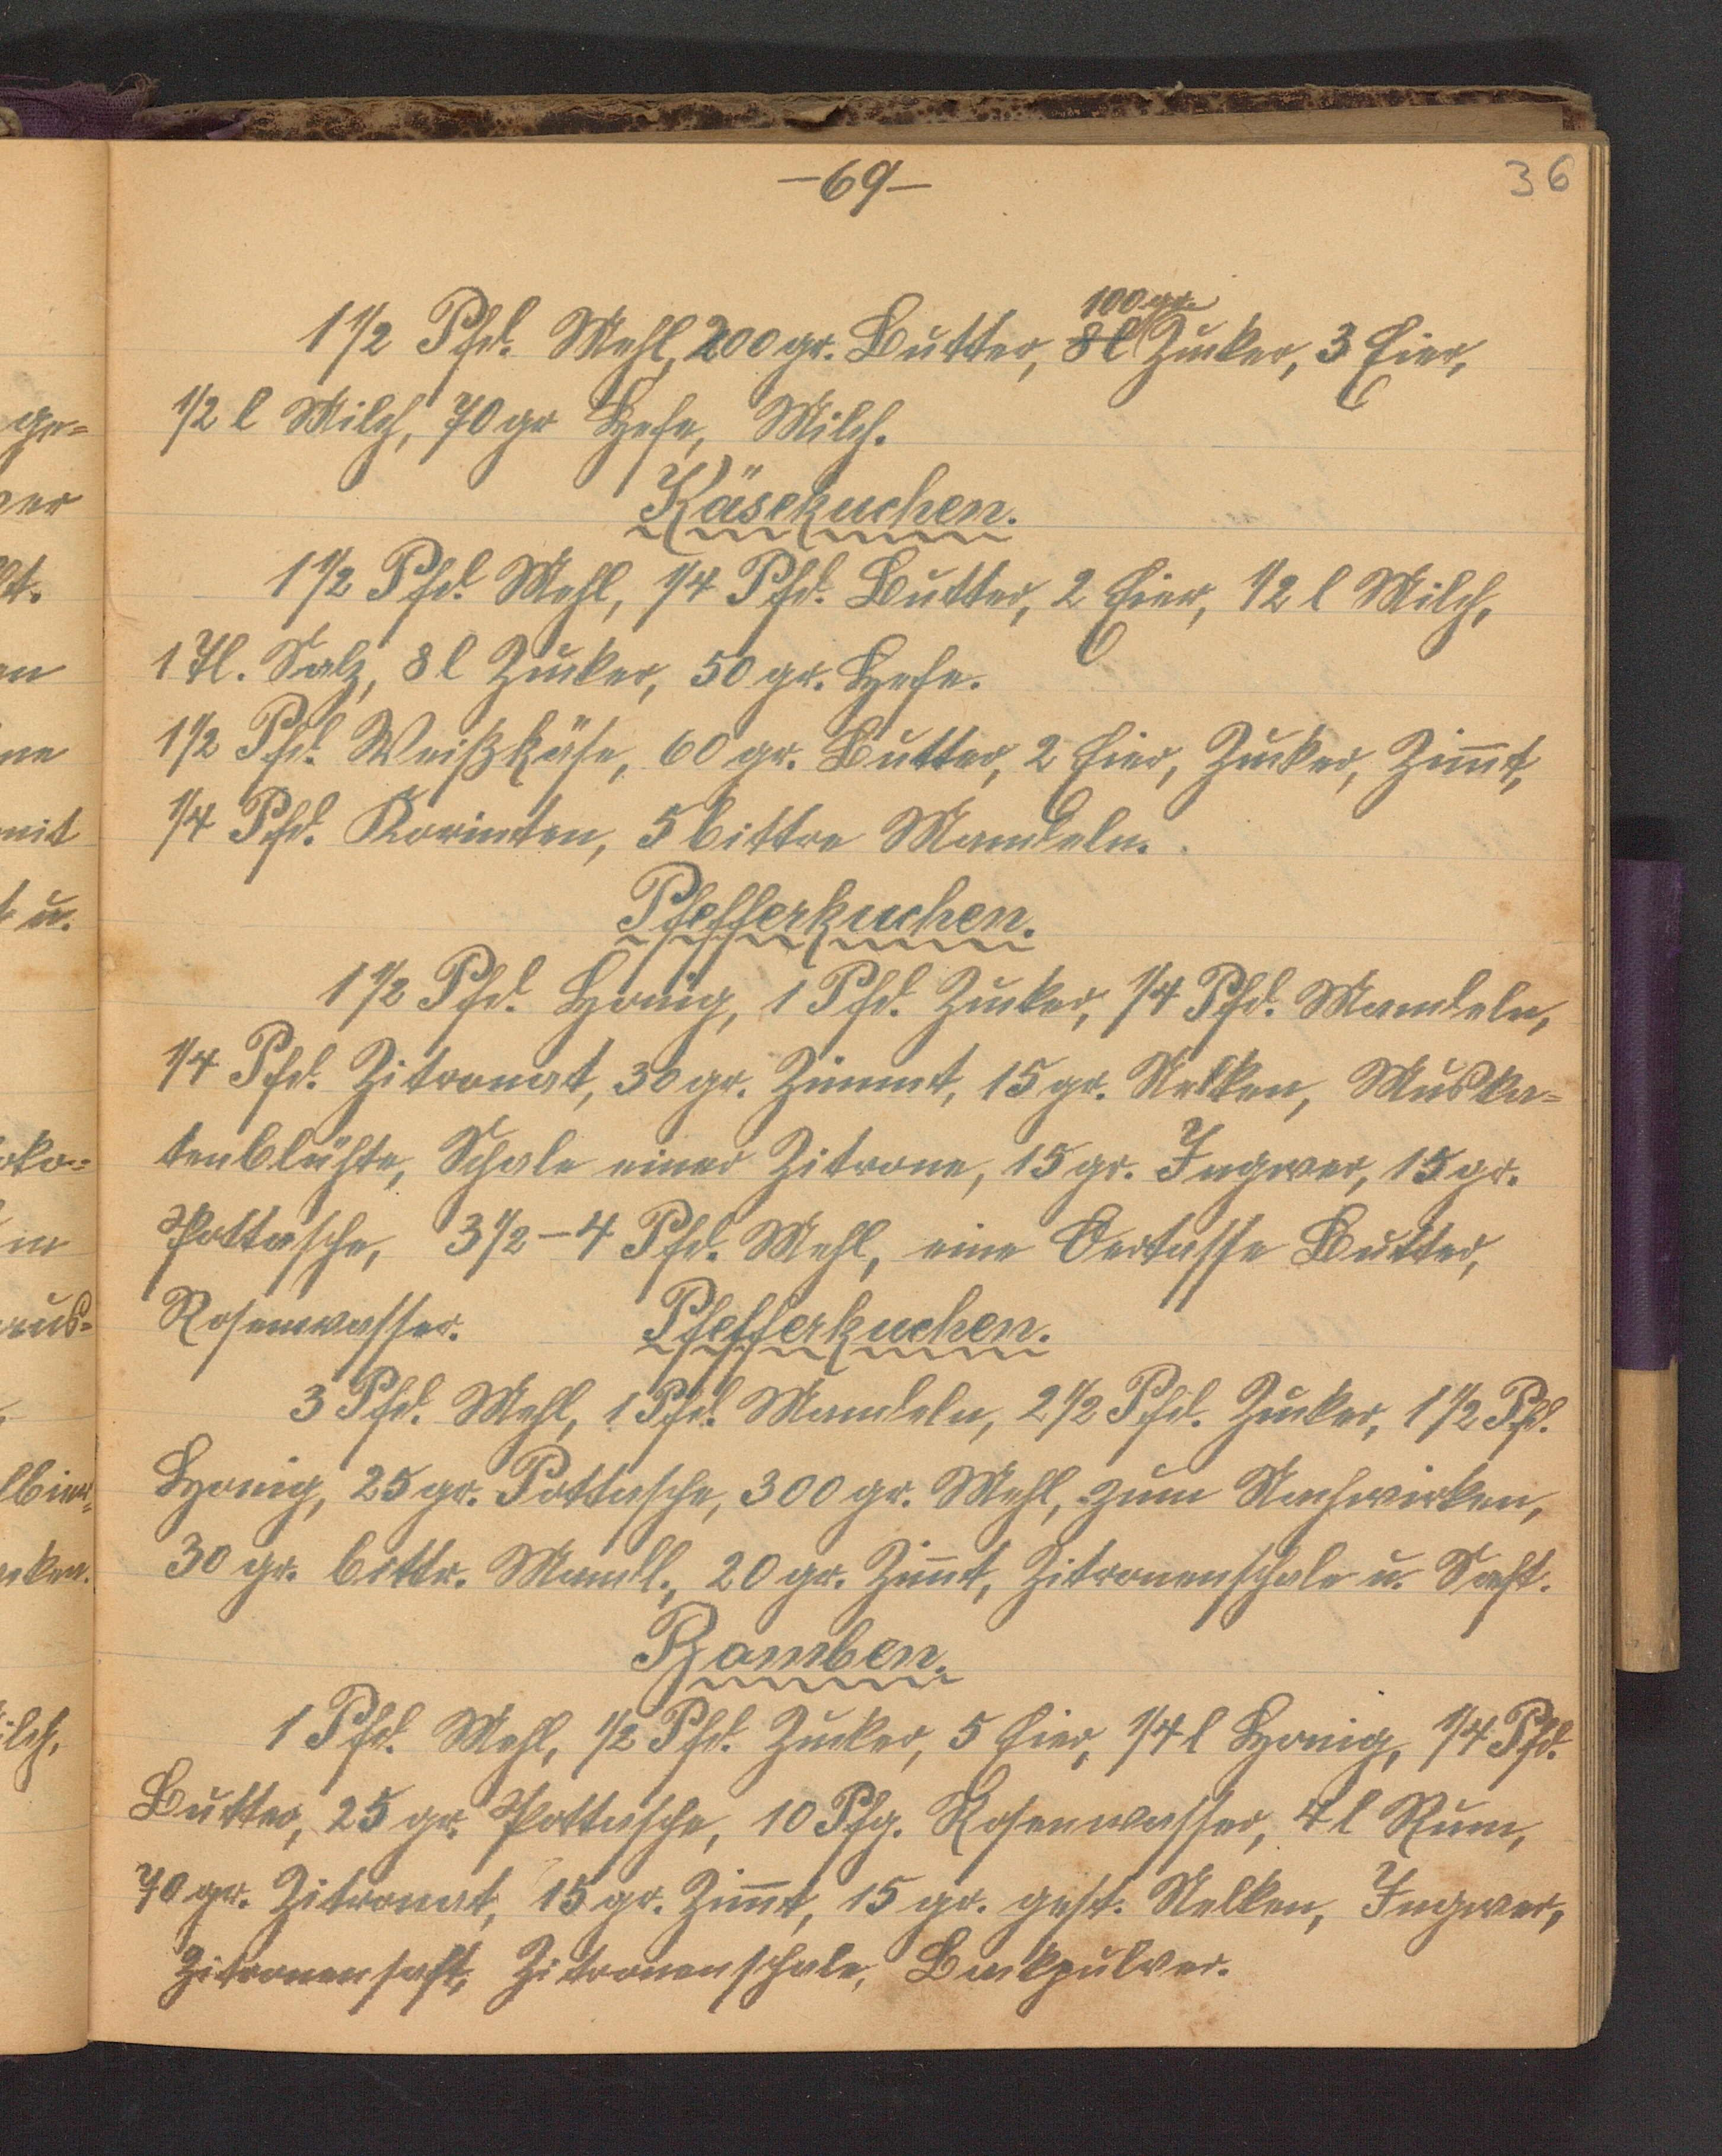 -69-
36
1 1/2 Pfd. Mehl, 200 gr. Butter, 8 l Zucker, 3 Eier,
100 gr.
1/2 l Milch, 70 gr Hefe, Milch.
Käsekuchen.
1 1/2 Pfd. Mehl, 1/4 Pfd. Butter, 2 Eier, 1/2 l Milch,
1 Tl. Salz, 8 l Zucker, 50 gr. Hefe.
1 1/2 Pfd. Weißkäse, 60 gr. Butter, 2 Eier, Zucker, Zim̅t,
1/4 Pfd. Korinten, 5 bittre Mandeln.
Pfefferkuchen.
1 1/2 Pfd. Honig, 1 Pfd. Zucker, 1/4 Pfd. Mandeln,
1/4 Pfd. Zitronat, 30 gr. Zimmt, 15 gr. Nelken, Muska=
tenblühte, Schale einer Zitrone, 15 gr. Ingwer, 15 gr.
Pottasche, 3 1/2 - 4 Pfd. Mehl, eine Obertasse Butter,
Rosenwasser.
Pfefferkuchen.
3 Pfd. Mehl, 1 Pfd. Mandeln, 2 1/2 Pfd. Zucker, 1 1/2 Pfd.
Honig, 25 gr. Pottasche, 300 gr. Mehl, zum Nachwirken,
30 gr. bittr. Mandl., 20 gr. Zim̅t, Zitronenschale u. Saft.
Bomben.
1 Pfd. Mehl, 1/2 Pfd. Zucker, 5 Eier, 1/4 l Honig, 1/4 Pfd.
Butter, 25 gr. Pottasche, 10 Pfg. Rosenwasser, 4 l Rum,
70 gr. Zitronat, 15 gr. Zim̅t, 15 gr. gest. Nelken, Ingwer,
Zitronensaft, Zitronenschale, Backpulver.